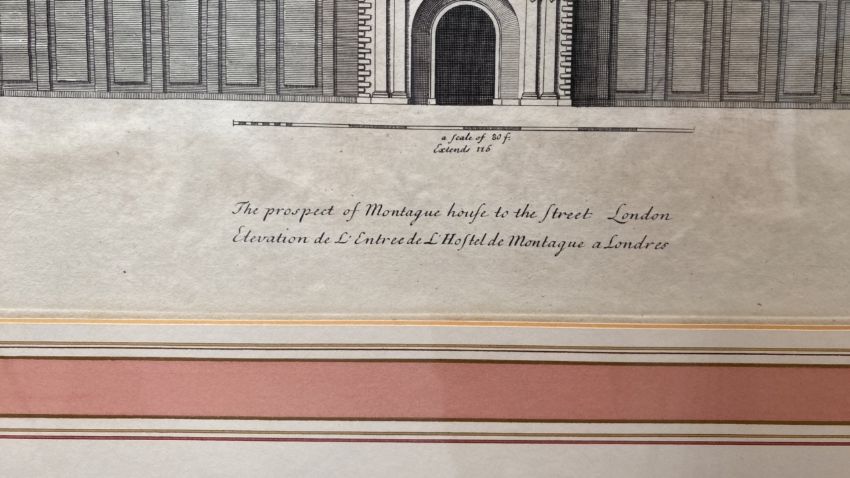 a ſcale of 80 f.
Extends 116
The prospect of Montague houſe to the ſtreet London
Elevation de L'Entree de L'Hoſtel de Montague a Londres